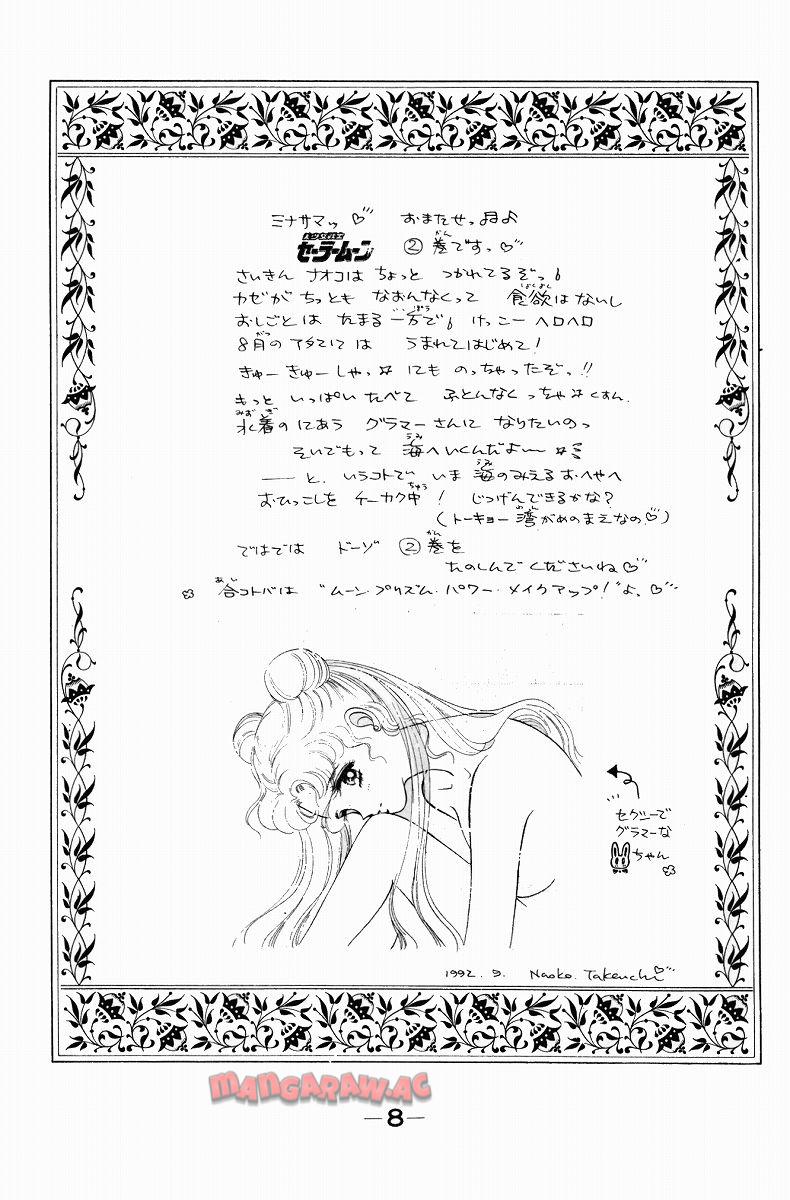 ミナサマッ♡ おまたせっ♬♪
美少女戦士
セーラームーン ②巻ですっ♡
さいきん ナオコは ちょっと つかれてるぞっ
カゼが ちっとも なおんなくって 食欲はないし
おしごとは たまる 一方で けっこー ヘロヘロ
8月の アタマには うまれてはじめて!
きゅーきゅーしゃっ☆にも のっちゃったぞっ!!
もっと いっぱい たべて ふとんなくっちゃ☆くすん.
水着の にあう グラマーさんに なりたいのっ
そいでもって 海へいくんだよ〜☆彡
――と、いうコトで いま 海のみえるおへやへ
おひっこしを チーカク中! じつげんできるかな?
(トーキョー湾がめのまえなの♡)
ではでは ドーゾ ②巻を
たのしんでくださいね♡
合コトバは “ムーン・プリズム・パワー・メイクアップ!”よ、♡
セクシーで
グラマーな
ちゃん
1992.9. Naoko.Takeuchi♡
MANGARAW.AC
—8—